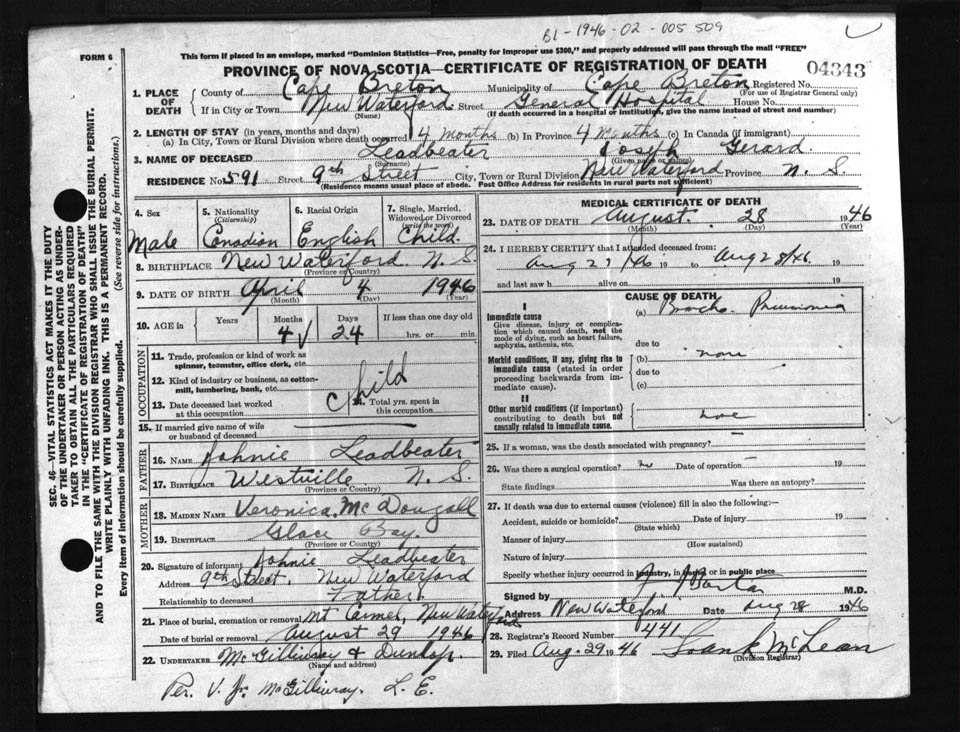 B1-1946-02-005509
FORM 6
This form if placed in an envelope, marked "Dominion Statistics—Free, penalty for improper use $300," and properly addressed will pass through the mail "FREE"
PROVINCE OF NOVA SCOTIA—CERTIFICATE OF REGISTRATION OF DEATH
04343
SEC. 46—VITAL STATISTICS ACT MAKES IT THE DUTY
OF THE UNDERTAKER OR PERSON ACTING AS UNDER-
TAKER TO OBTAIN ALL THE PARTICULARS REQUIRED
IN THE "CERTIFICATE OF REGISTRATION OF DEATH"
AND TO FILE THE SAME WITH THE DIVISION REGISTRAR WHO SHALL ISSUE THE BURIAL PERMIT.
WRITE PLAINLY WITH UNFADING INK. THIS IS A PERMANENT RECORD.
Every item of information should be carefully supplied. (See reverse side for instructions.)
1. PLACE OF DEATH County of Cape Breton Municipality of Cape Breton Registered No.
(For use of Registrar General only)
If in City or Town New Waterford Street General Hospital House No.
(Name) (If death occurred in a hospital or institution, give the name instead of street and number)
2. LENGTH OF STAY (in years, months and days)
(a) In City, Town or Rural Division where death occurred 4 months (b) In Province 4 months (c) In Canada (if immigrant)
3. NAME OF DECEASED Leadbeater Joseph Gerard
(Surname) (Given name or names)
RESIDENCE No. 591 Street 9th Street City, Town or Rural Division New Waterford Province N. S.
(Residence means usual place of abode. Post Office Address for residents in rural parts not sufficient)
4. Sex Male
5. Nationality (Citizenship) Canadian
6. Racial Origin English
7. Single, Married, Widowed or Divorced (write the word) Child.
8. BIRTHPLACE New Waterford N. S.
(Province or Country)
9. DATE OF BIRTH April 4 1946
(Month) (Day) (Year)
10. AGE in Years Months 4 Days 24 If less than one day old
hrs. or min.
OCCUPATION
11. Trade, profession or kind of work as
spinner, teamster, office clerk, etc.
12. Kind of industry or business, as cotton-
mill, lumbering, bank, etc.
child
13. Date deceased last worked
at this occupation
14. Total yrs. spent in
this occupation
15. If married give name of wife
or husband of deceased
FATHER
16. NAME Johnie Leadbeater
17. BIRTHPLACE Westville N. S.
(Province or Country)
MOTHER
18. MAIDEN NAME Veronica McDougall
19. BIRTHPLACE Glace Bay.
(Province or Country)
20. Signature of informant Johnie Leadbeater
Address 9th Street. New Waterford
Relationship to deceased Father
21. Place of burial, cremation or removal Mt Carmel, New Waterford
Date of burial or removal August 29 1946
22. UNDERTAKER McGillivray & Dunlop.
(Name and address)
Per. V. Jr. McGillivray. L. E.
MEDICAL CERTIFICATE OF DEATH
23. DATE OF DEATH August. 28 1946
(Month) (Day) (Year)
24. I HEREBY CERTIFY that I attended deceased from:
19 to Aug 28/46 19
and last saw h alive on 19
CAUSE OF DEATH
I
Immediate cause
Give disease, injury or complica-
tion which caused death, not the
mode of dying, such as heart failure,
asphyxia, asthenia, etc.
(a) Broncho. Pneumonia
due to
Morbid conditions, if any, giving rise to
immediate cause (stated in order
proceeding backwards from im-
mediate cause).
(b) none
due to
(c)
II
Other morbid conditions (if important)
contributing to death but not
causally related to immediate cause.
25. If a woman, was the death associated with pregnancy?
26. Was there a surgical operation? Date of operation 19
State findings Was there an autopsy?
27. If death was due to external causes (violence) fill in also the following:—
Accident, suicide or homicide? Date of injury 19
(State which)
Manner of injury
(How sustained)
Nature of injury
Specify whether injury occurred in industry, in home or in public place
Signed by M.D.
Address New Waterford Date Aug 28 1946
28. Registrar's Record Number 441
29. Filed Aug. 29 1946 McLean
(Division Registrar)